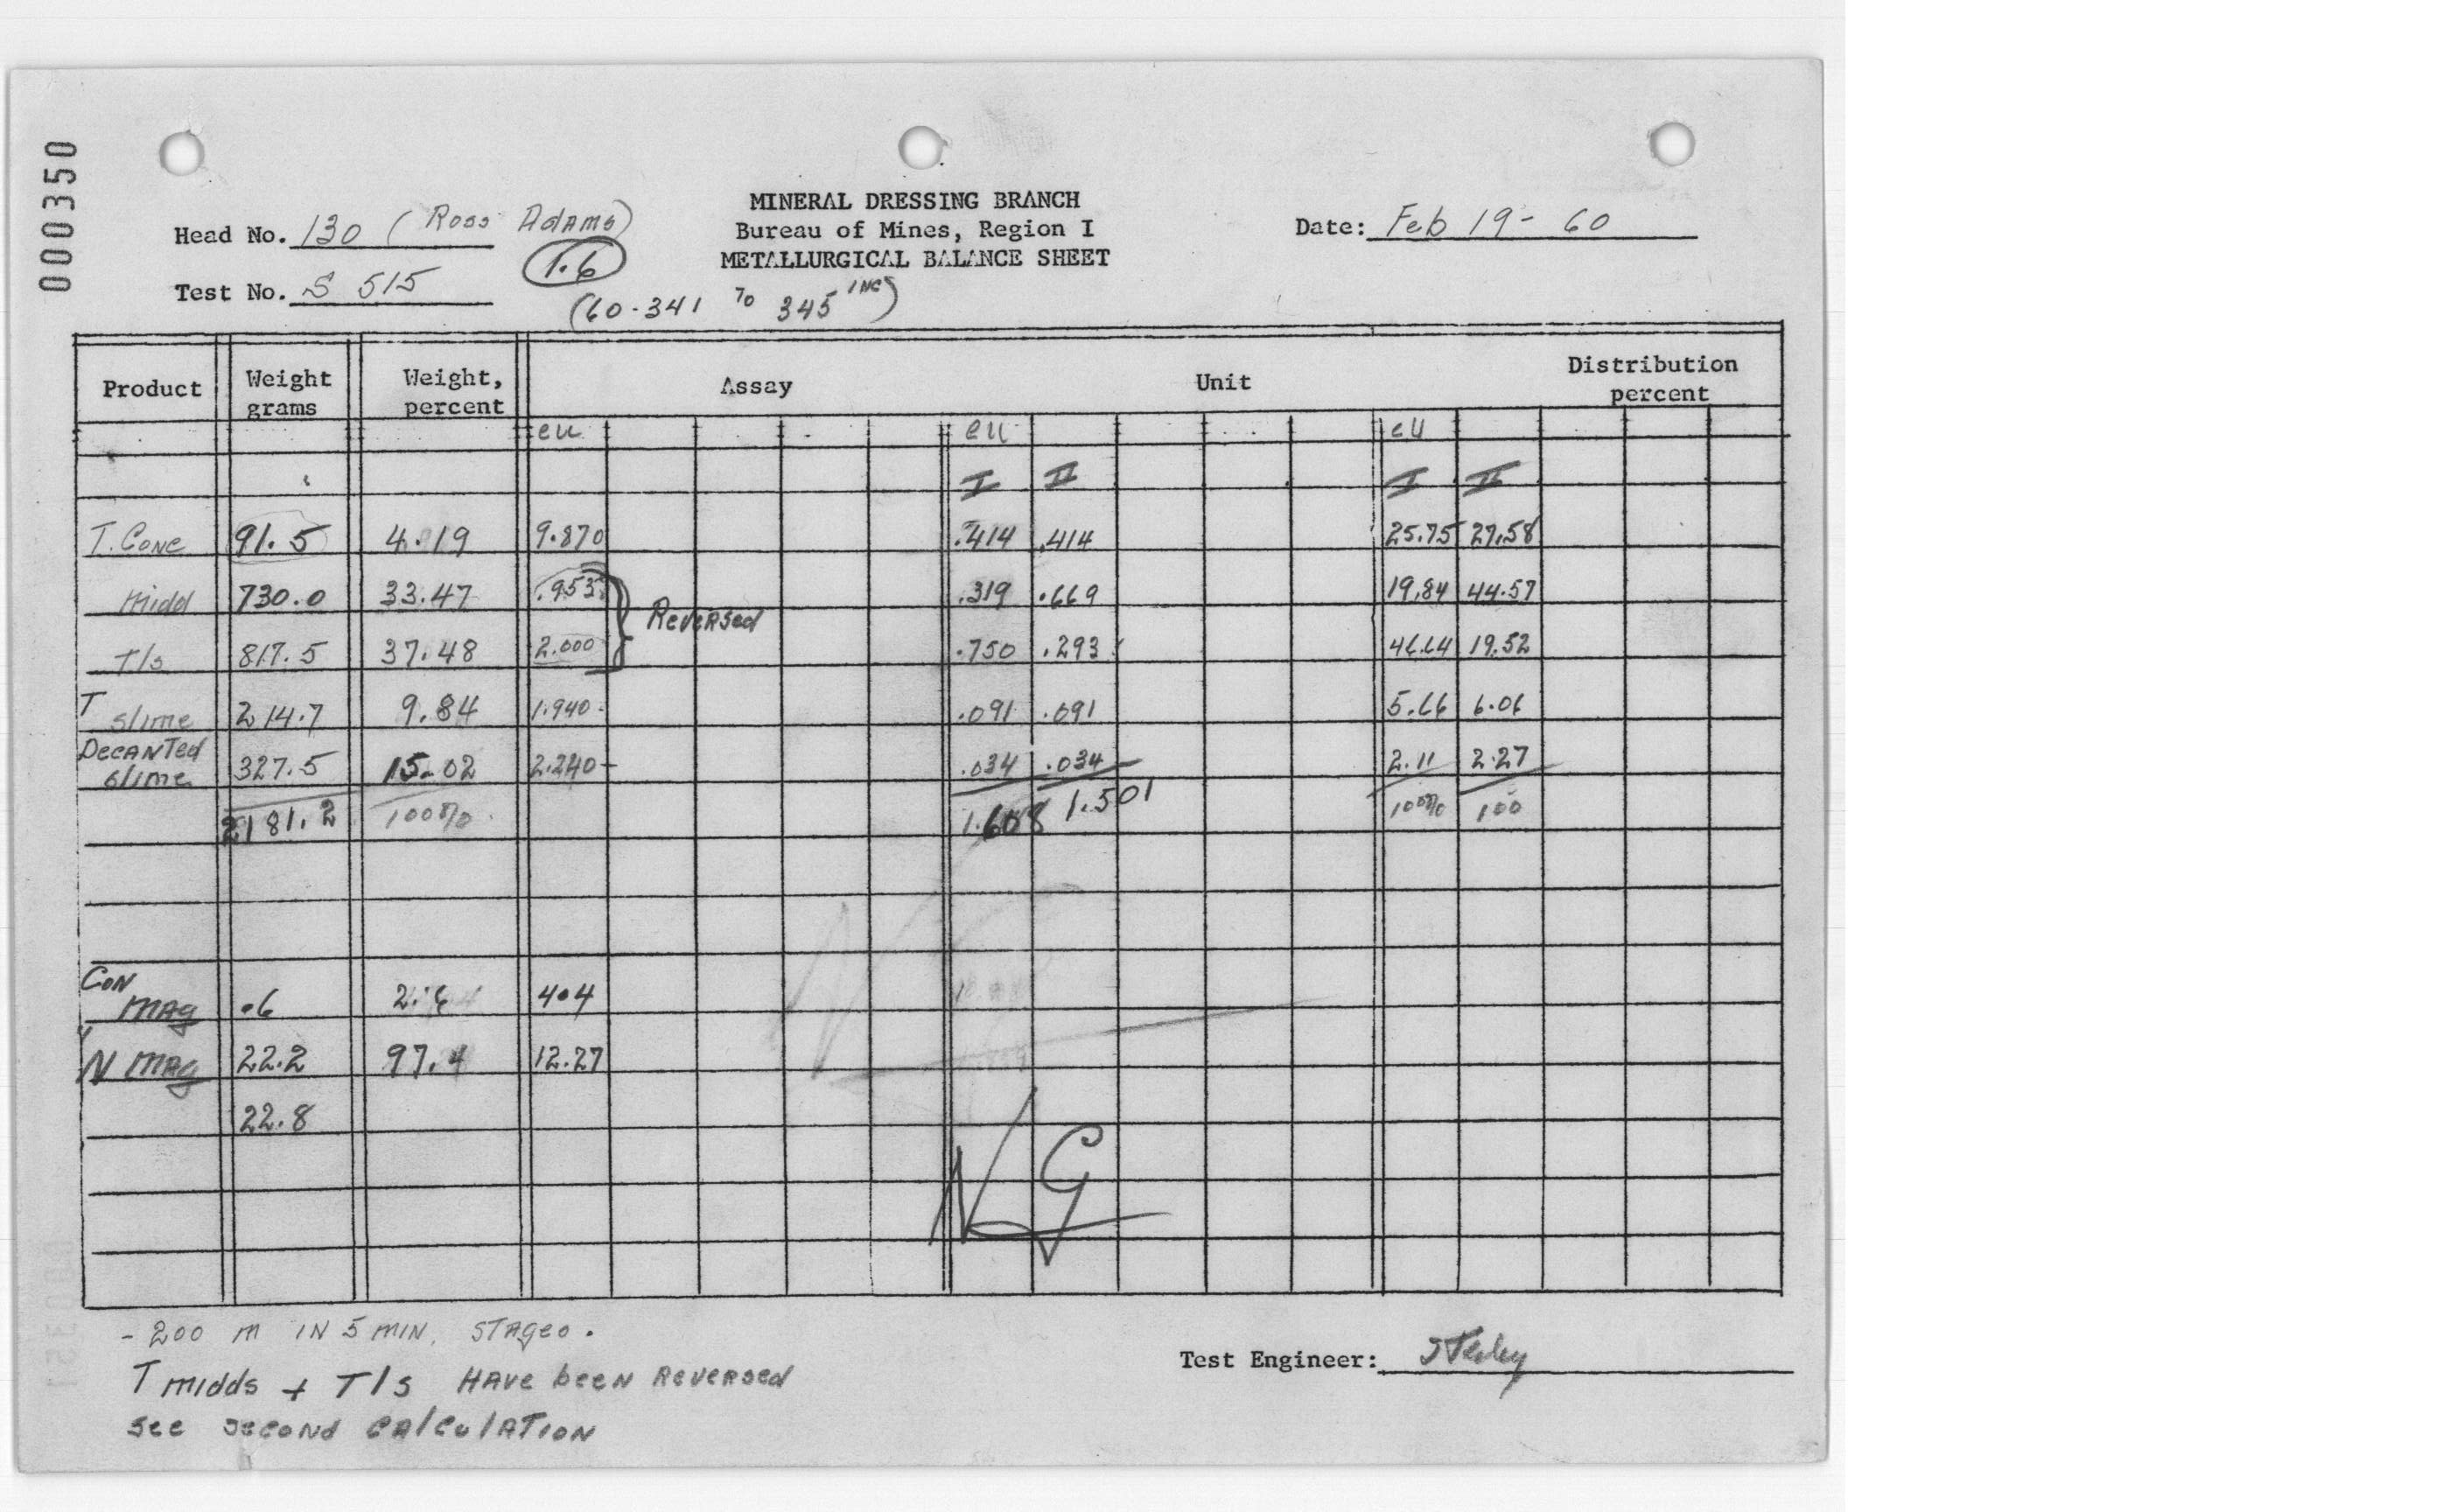 000350
MINERAL DRESSING BRANCH
Bureau of Mines, Region I
METALLURGICAL BALANCE SHEET
Head No. 130 (Ross Adams)
Date: Feb 19- 60
T.6
Test No. S 515
(60-341 To 345 INC)
Product Weight grams Weight, percent Assay Unit Distribution percent
eu eu eu
I II I II
T. Conc 91.5 4.19 9.870 .414 .414 25.75 27.58
Midd 730.0 33.47 .953 .319 .669 19.84 44.57
Reversed
T/s 817.5 37.48 2.000 .750 .293 46.64 19.52
T slime 214.7 9.84 1.940 .091 .091 5.66 6.06
Decanted slime 327.5 15.02 2.240 .034 .034 2.11 2.27
2181.2 100% 1.608 1.501 100% 100
Con mag .6 2.6 4.4
" N mag 22.2 97.4 12.27
22.8
NG
-200 m IN 5 MIN. STAGED.
T midds + T/s HAVE been REVERSED
See second CALCULATION
Test Engineer: